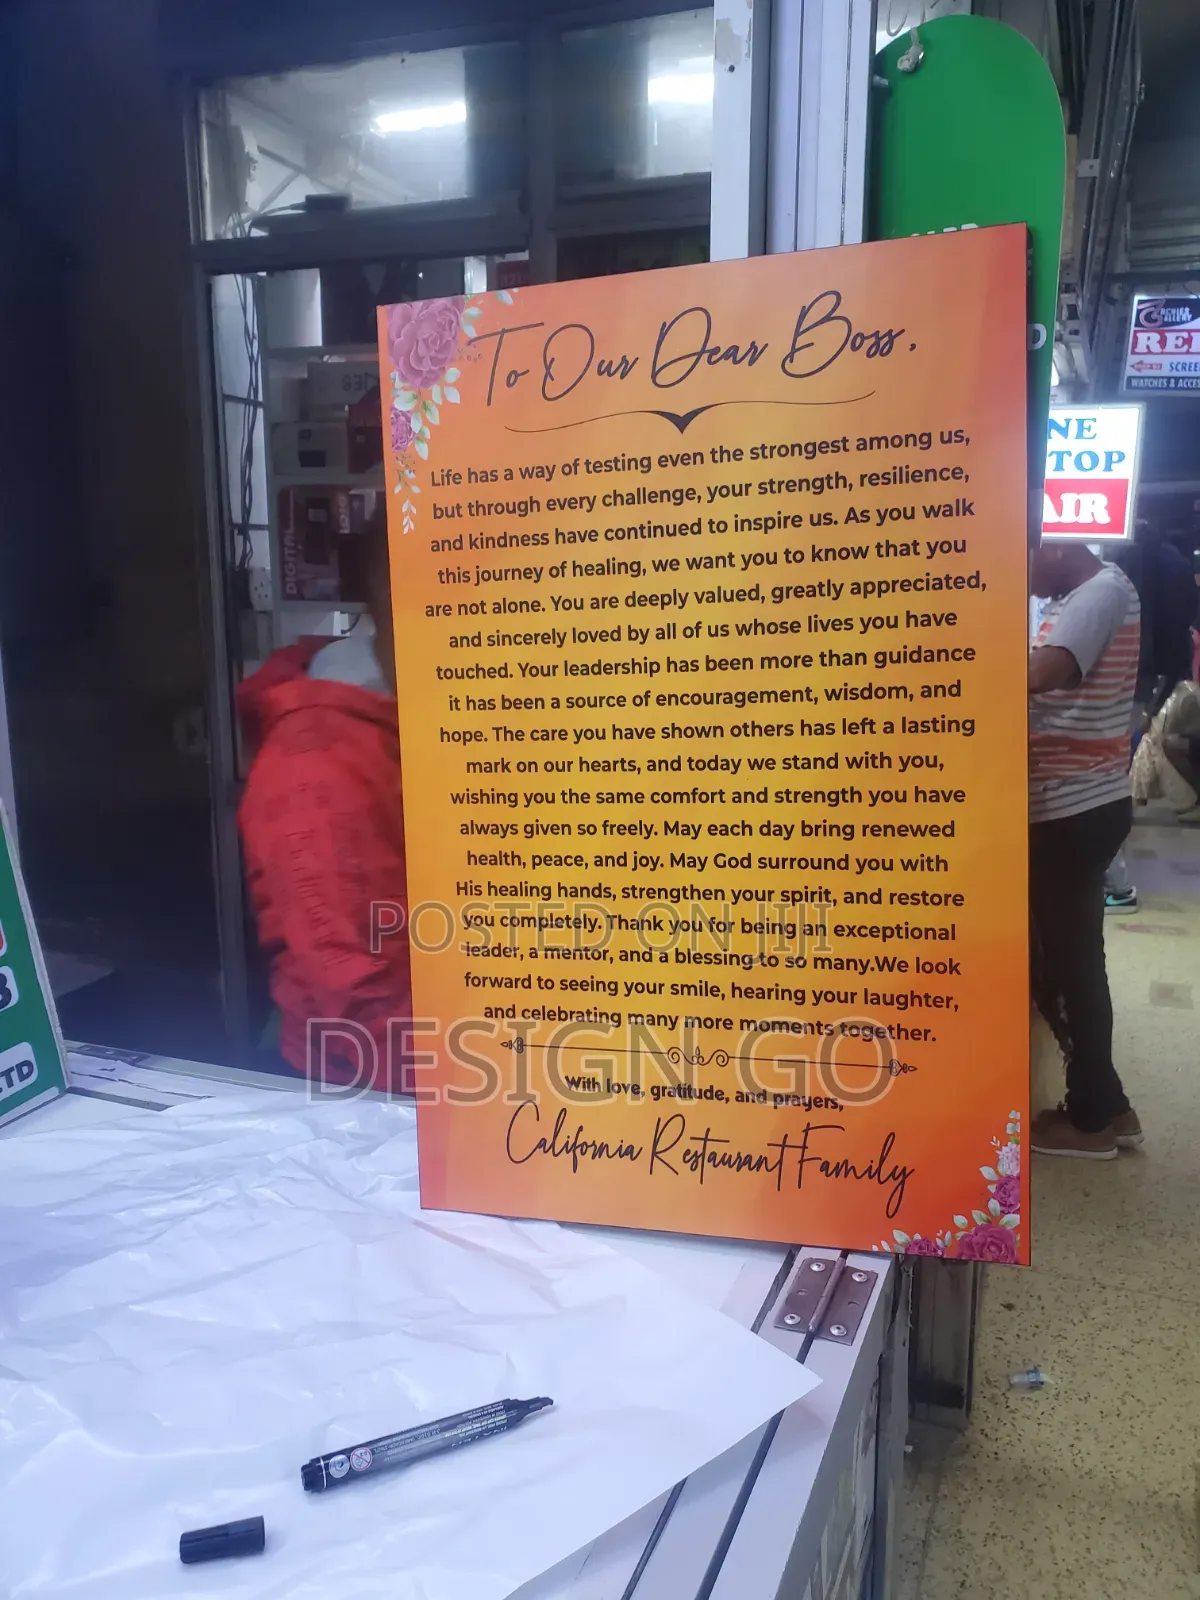 To Our Dear Boss,
Life has a way of testing even the strongest among us,
but through every challenge, your strength, resilience,
and kindness have continued to inspire us. As you walk
this journey of healing, we want you to know that you
are not alone. You are deeply valued, greatly appreciated,
and sincerely loved by all of us whose lives you have
touched. Your leadership has been more than guidance
it has been a source of encouragement, wisdom, and
hope. The care you have shown others has left a lasting
mark on our hearts, and today we stand with you,
wishing you the same comfort and strength you have
always given so freely. May each day bring renewed
health, peace, and joy. May God surround you with
His healing hands, strengthen your spirit, and restore
you completely. Thank you for being an exceptional
leader, a mentor, and a blessing to so many.We look
forward to seeing your smile, hearing your laughter,
and celebrating many more moments together.
With love, gratitude, and prayers,
California Restaurant Family
POSTED ON JIJI
DESIGN GO
NE
TOP
AIR
REP
SCREE
WATCHES & ACCES
DIGITAL
LTD